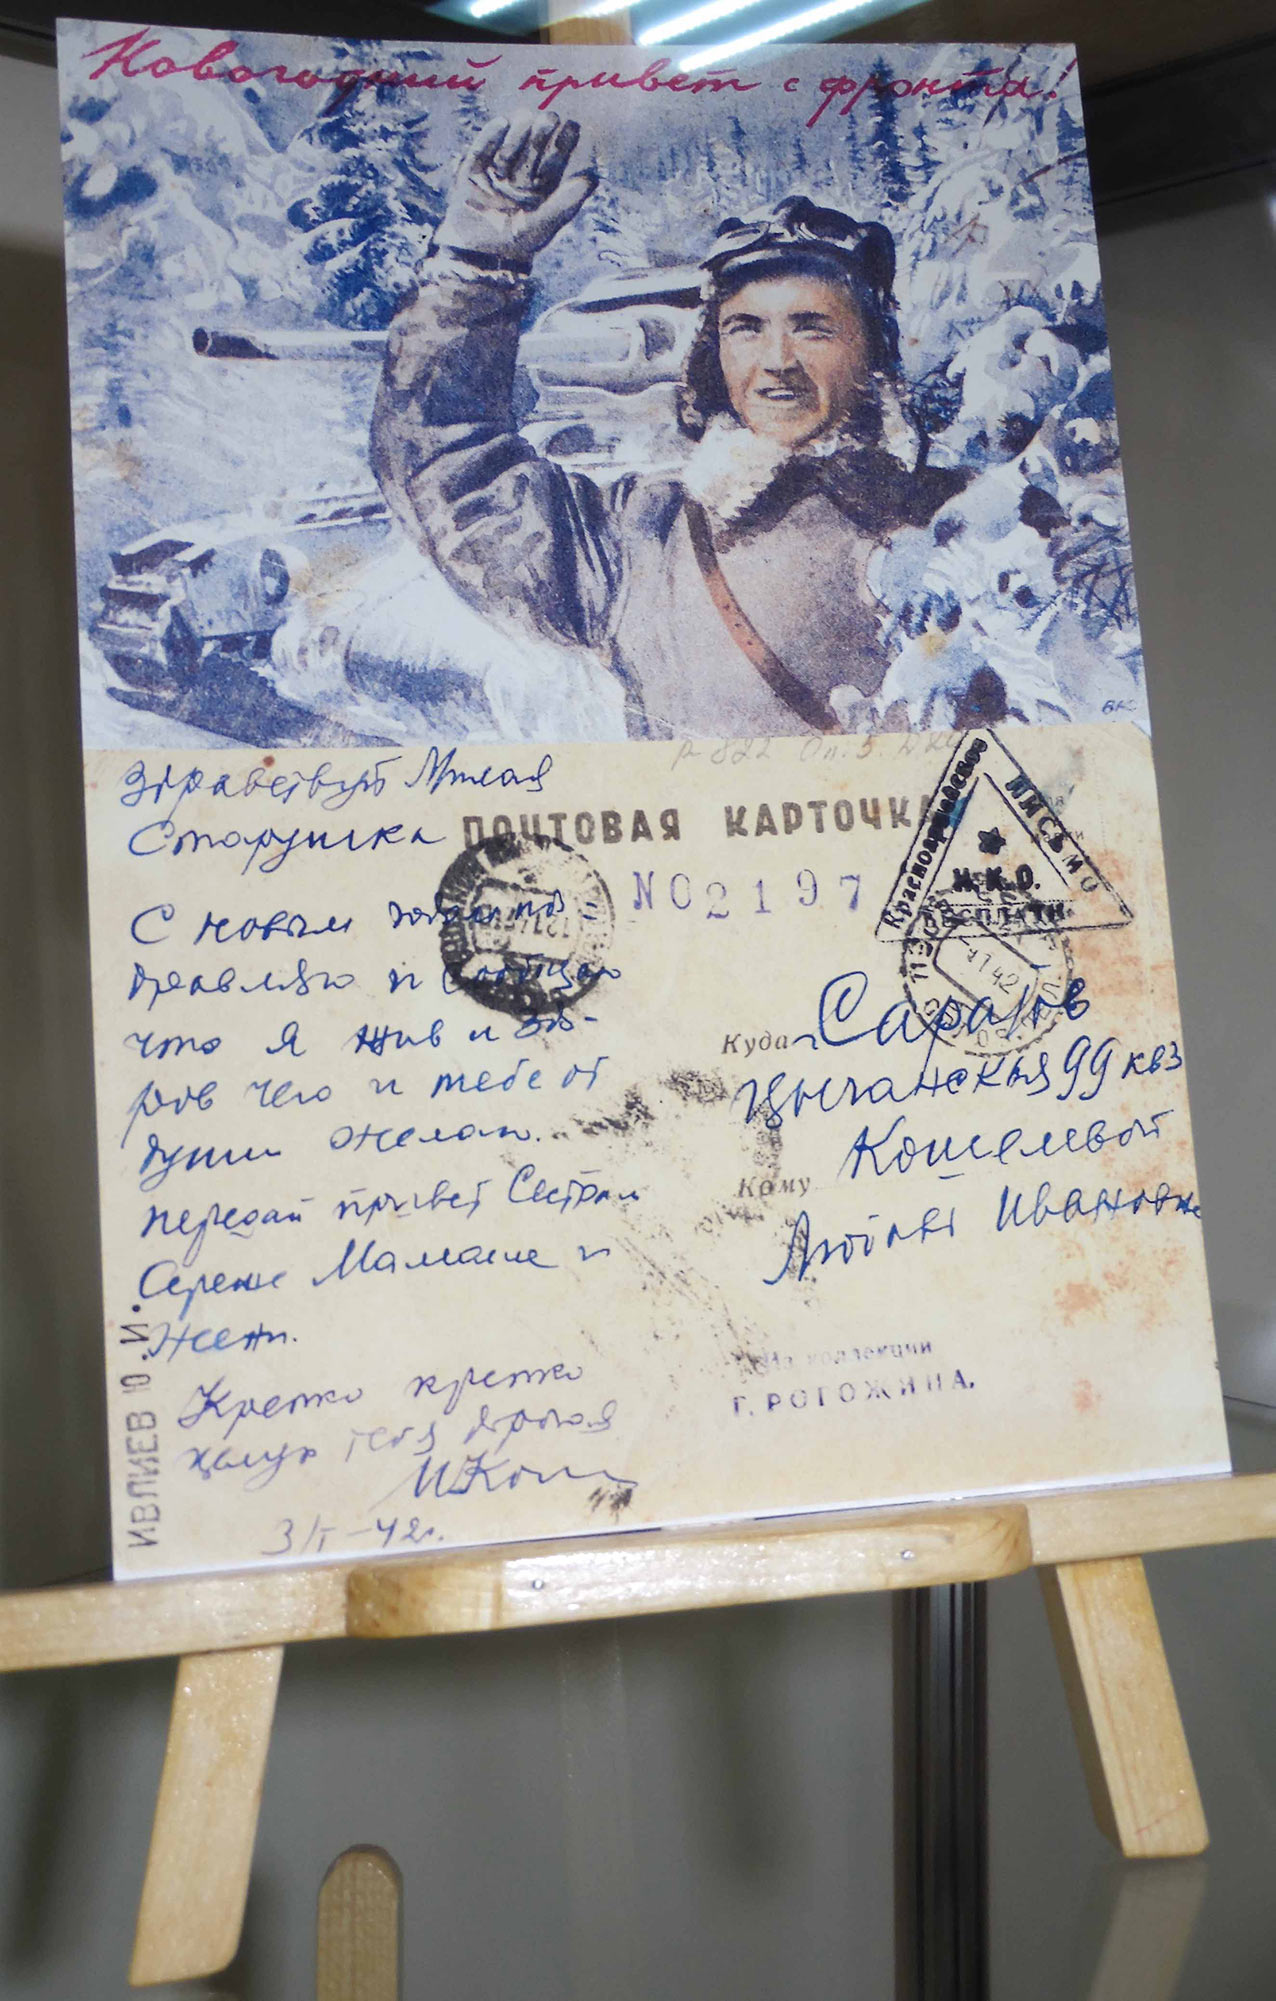 Новогодний привет с фронта!
Р-822 Оп. 3.
Здравствуй Милая
Старушка
ПОЧТОВАЯ КАРТОЧКА
Красноармейское
ПИСЬМО
Н.К.О.
БЕСПЛАТН.
NO2197
С новым годом по
здравляю и сообщаю
что я жив и здо-
ров чего и тебе от
души желаю.
передай привет Сестрам
Сереже Мамаше и
Жени.
Крепко крепко
целую тебя дорогая
3/I-42г.
Куда г Саратов
Цыганская 99 кв 3
Кому Кошелевой
Любови Ивановне
Из коллекции
Г. РОГОЖИНА.
ИВЛИЕВ Ю.И.